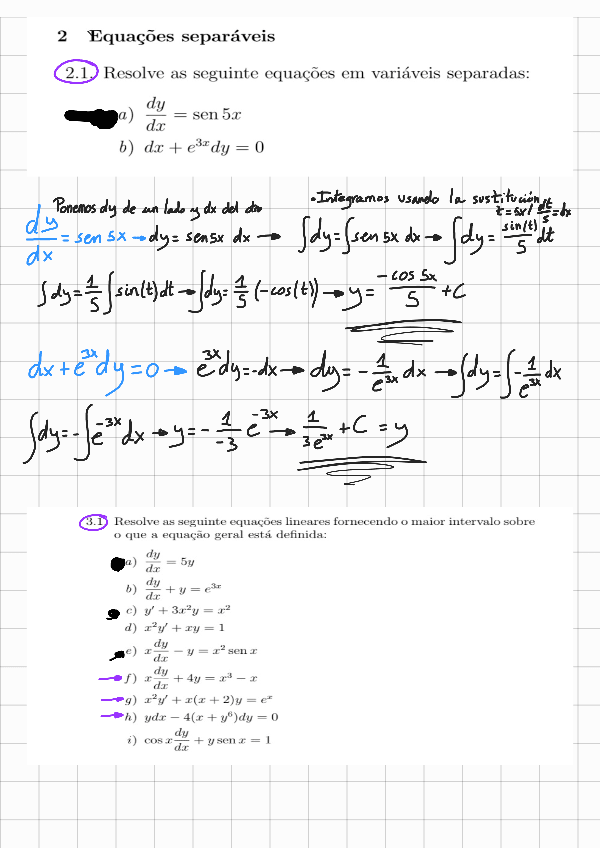 2 Equações separáveis
2.1. Resolve as seguinte equações em variáveis separadas:
a) dy/dx = sen 5x
b) dx + e^{3x}dy = 0
Ponemos dy de un lado y dx del otro
dy/dx = sen 5x → dy = sen 5x dx →
• Integramos usando la sustitución
t = 5x / dt/5 = dx
∫dy = ∫sen 5x dx → ∫dy = sin(t)/5 dt
∫dy = 1/5 ∫sin(t)dt → ∫dy = 1/5 (-cos(t)) → y = -cos 5x/5 + C
dx + e^{3x}dy = 0 → e^{3x}dy = -dx → dy = -1/e^{3x} dx → ∫dy = ∫-1/e^{3x} dx
∫dy = -∫e^{-3x}dx → y = -1/-3 e^{-3x} → 1/3e^{3x} + C = y
3.1 Resolve as seguinte equações lineares fornecendo o maior intervalo sobre
o que a equação geral está definida:
a) dy/dx = 5y
b) dy/dx + y = e^{3x}
c) y' + 3x²y = x²
d) x²y' + xy = 1
e) x dy/dx − y = x² sen x
f) x dy/dx + 4y = x³ − x
g) x²y' + x(x + 2)y = e^x
h) ydx − 4(x + y⁶)dy = 0
i) cos x dy/dx + y sen x = 1